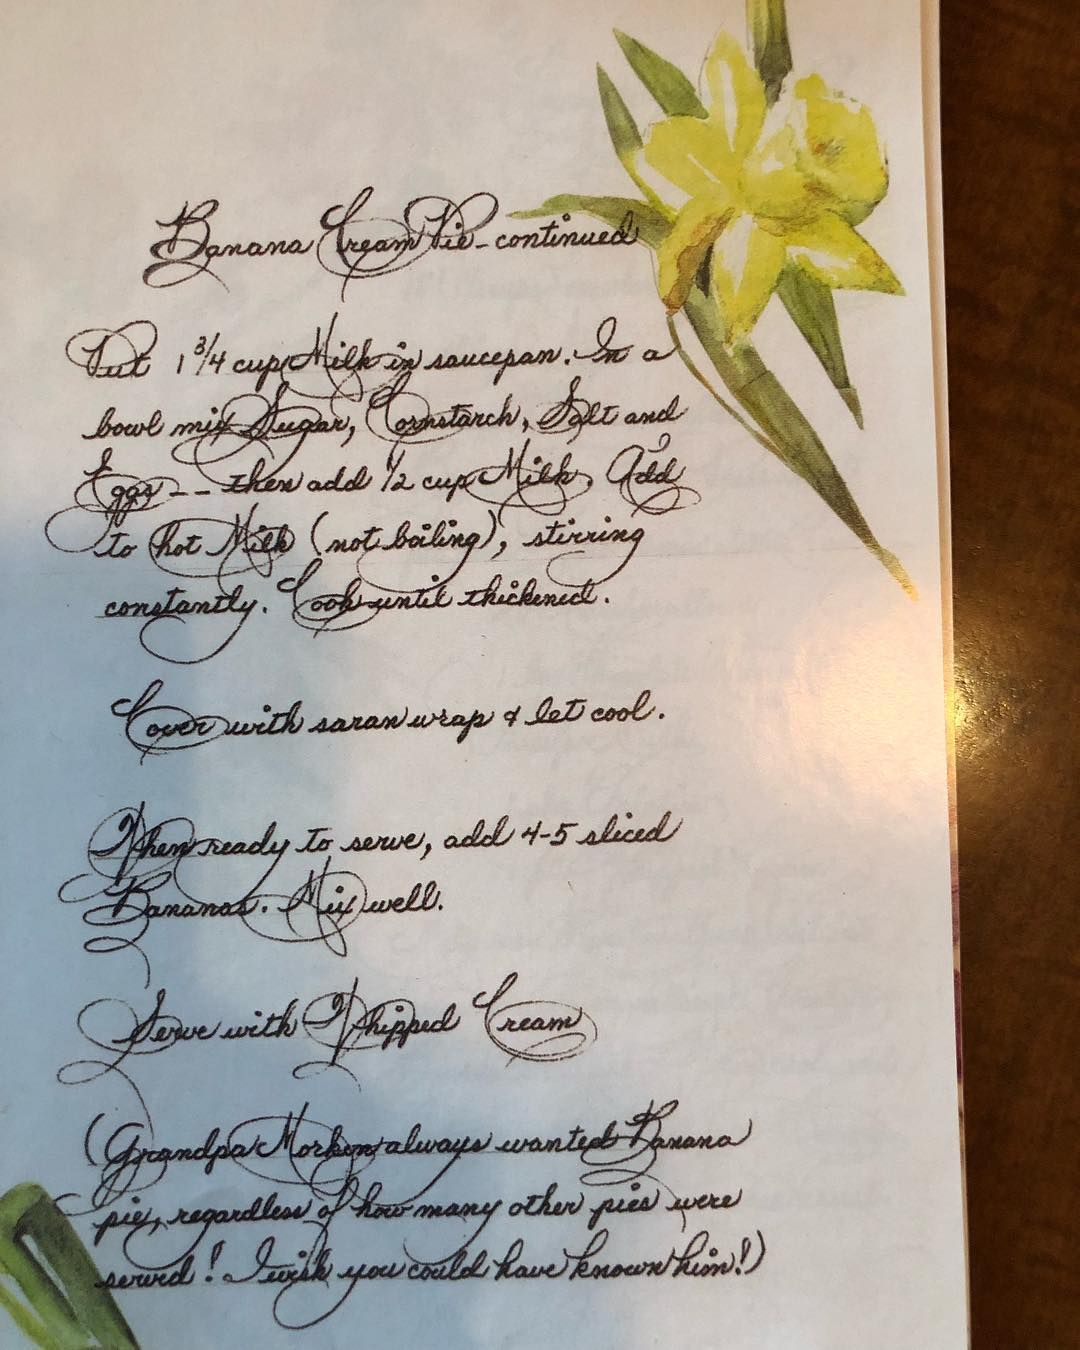 Banana Cream Pie - continued
Put 1 3/4 cup Milk in saucepan. In a
bowl mix Sugar, Cornstarch, Salt and
Eggs -- then add 1/2 cup Milk. Add
to hot Milk (not boiling), stirring
constantly. Cook until thickened.
Cover with saran wrap & let cool.
When ready to serve, add 4-5 sliced
Bananas. Mix well.
Serve with Whipped Cream
(Grandpa Morken always wanted Banana
pie, regardless of how many other pies were
served! I wish you could have known him!)